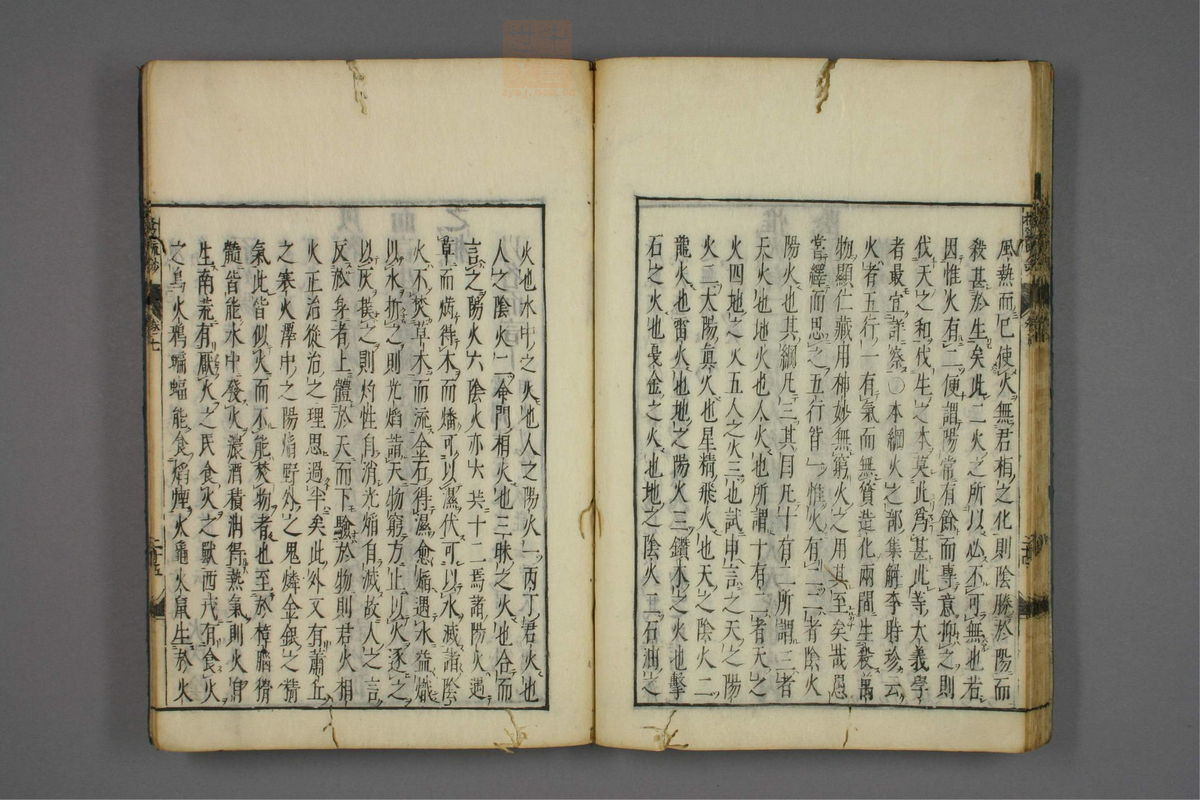 風熱而已使火無君相之化則陰勝於陽而
殺甚於生矣此二火之所以必不可無也若
因惟火有二便謂陽常有餘而專意抑之則
伐天之和伐生之本莫此爲甚此等大義學
者最宜詳察〇本綱火之部集解李時珍云
火者五行一有氣而無質造化兩間生殺萬
物顯仁藏用神妙無窮火之用其至矣哉愚
嘗繹而思之五行皆一惟火有二二者陰火
陽火也其綱凡三其目凡十有二所謂三者
天火也地火也人火也所謂十有二者天之
火四地之火五人之火三也試申言之天之陽
火二太陽眞火也星精飛火也天之陰火二
龍火也雷火也地之陽火三鑽木之火也擊
石之火也戛金之火也地之陰火二石油之
火也水中之火也人之陽火一丙丁君火也
人之陰火二命門相火也三昧之火也合而
言之陽火六陰火亦六共十二焉諸陽火遇
草而焫得木而燔可以濕伏可以水滅諸陰
火不焚草木而流金石得濕愈焰遇水益熾
以水折之則光焰詣天物窮方止以火逐之
以灰撲之則灼性自消光焰自滅故人之言
反於身者上體於天而下驗於物則君火相
火正治從治之理思過半矣此外又有蕭丘
之寒火澤中之陽焰野外之鬼燐金銀之精
氣此皆似火而不能焚物者也至於樟腦猾
髓皆能水中發火濃酒積油得熱氣則火自
生南荒有厭火之民食火之獸西戎有食火
之鳥火鴉蝙蝠能食焰煙火龜火鼠生於火